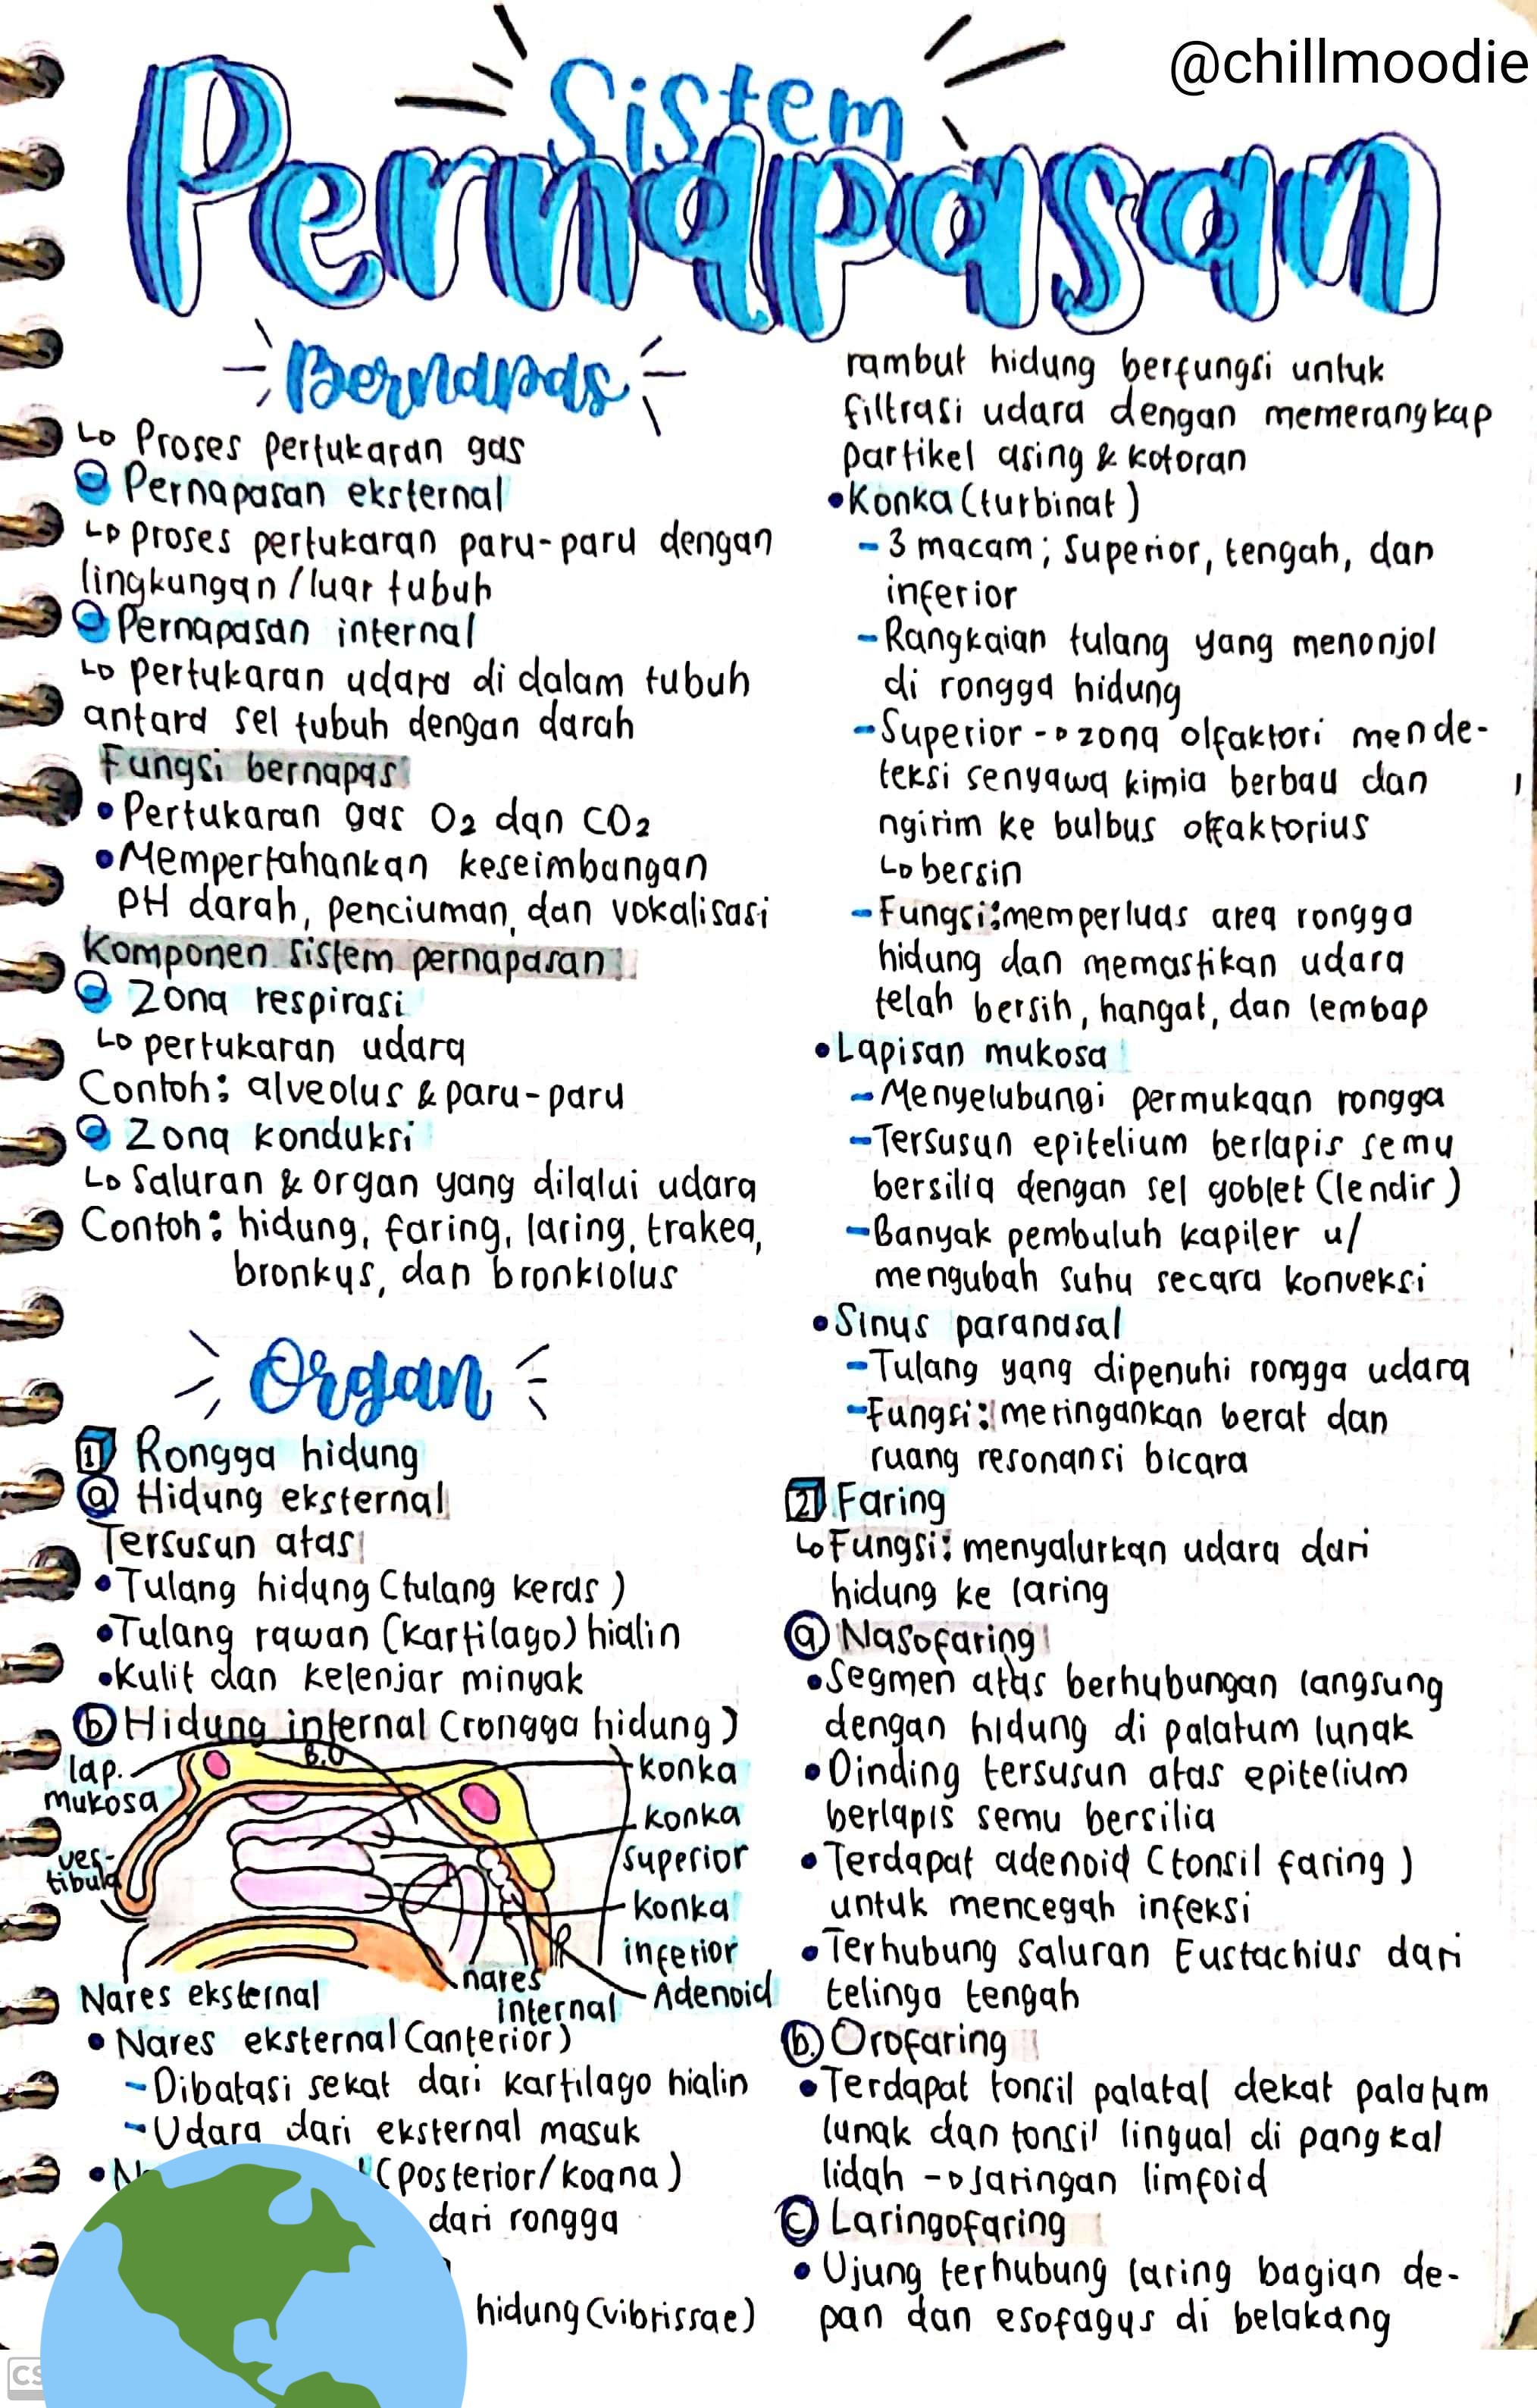 @chillmoodie
Sistem
Pernapasan
Bernapas
Proses pertukaran gas
Pernapasan eksternal
proses pertukaran paru-paru dengan
lingkungan/luar tubuh
Pernapasan internal
pertukaran udara di dalam tubuh
antara sel tubuh dengan darah
Fungsi bernapas
• Pertukaran gas O2 dan CO2
• Mempertahankan keseimbangan
PH darah, penciuman, dan vokalisasi
Komponen sistem pernapasan
Zona respirasi
pertukaran udara
Contoh: alveolus & paru-paru
Zona konduksi
Saluran & organ yang dilalui udara
Contoh: hidung, faring, laring, trakea,
bronkus, dan bronkiolus
Organ
1 Rongga hidung
a Hidung eksternal
Tersusun atas
• Tulang hidung (tulang keras)
• Tulang rawan (kartilago) hialin
• Kulit dan kelenjar minyak
b Hidung internal (rongga hidung)
lap.
mukosa
B.O
konka
konka
superior
ves-
tibula
konka
inferior
nares
internal
Adenoid
Nares eksternal
• Nares eksternal (anterior)
- Dibatasi sekat dari kartilago hialin
- Udara dari eksternal masuk
• (posterior/koana)
dari rongga
hidung (vibrissae)
rambut hidung berfungsi untuk
filtrasi udara dengan memerangkap
partikel asing & kotoran
• Konka (turbinat)
- 3 macam; superior, tengah, dan
inferior
- Rangkaian tulang yang menonjol
di rongga hidung
- Superior -> zona olfaktori mende-
teksi senyawa kimia berbau dan
ngirim ke bulbus olfaktorius
bersin
- Fungsi: memperluas area rongga
hidung dan memastikan udara
telah bersih, hangat, dan lembap
• Lapisan mukosa
- Menyelubungi permukaan rongga
- Tersusun epitelium berlapis semu
bersilia dengan sel goblet (lendir)
- Banyak pembuluh kapiler u/
mengubah suhu secara konveksi
• Sinus paranasal
- Tulang yang dipenuhi rongga udara
- Fungsi: meringankan berat dan
ruang resonansi bicara
2 Faring
Fungsi: menyalurkan udara dari
hidung ke laring
a Nasofaring
• Segmen atas berhubungan langsung
dengan hidung di palatum lunak
• Dinding tersusun atas epitelium
berlapis semu bersilia
• Terdapat adenoid (tonsil faring)
untuk mencegah infeksi
• Terhubung saluran Eustachius dari
telinga tengah
b. Orofaring
• Terdapat tonsil palatal dekat palatum
lunak dan tonsil lingual di pangkal
lidah -> Jaringan limfoid
c Laringofaring
• Ujung terhubung laring bagian de-
pan dan esofagus di belakang
CS